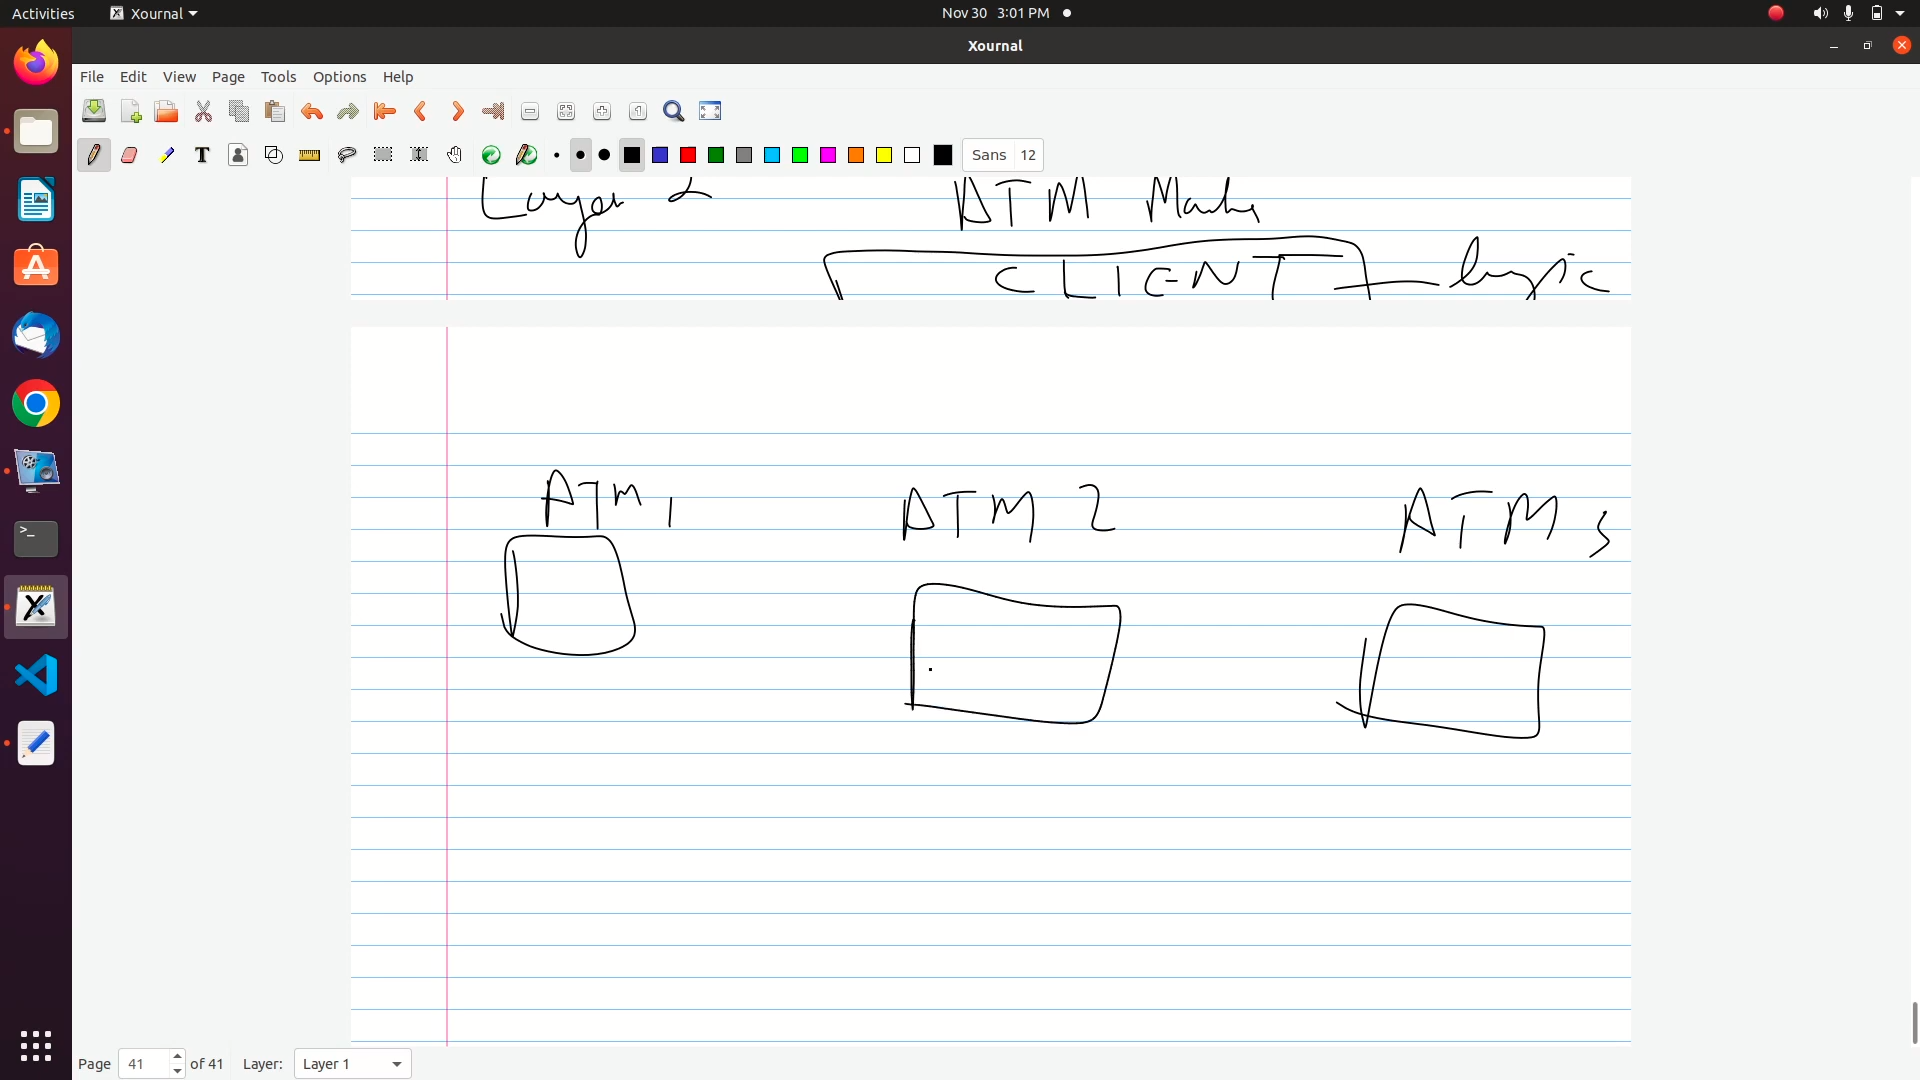 Activities Xournal Nov 30 3:01 PM
Xournal
File Edit View Page Tools Options Help
Sans 12
Layer 2 ATM
CLIENT logic
ATM 1 ATM 2 ATM 3
Page 41 of 41 Layer: Layer 1